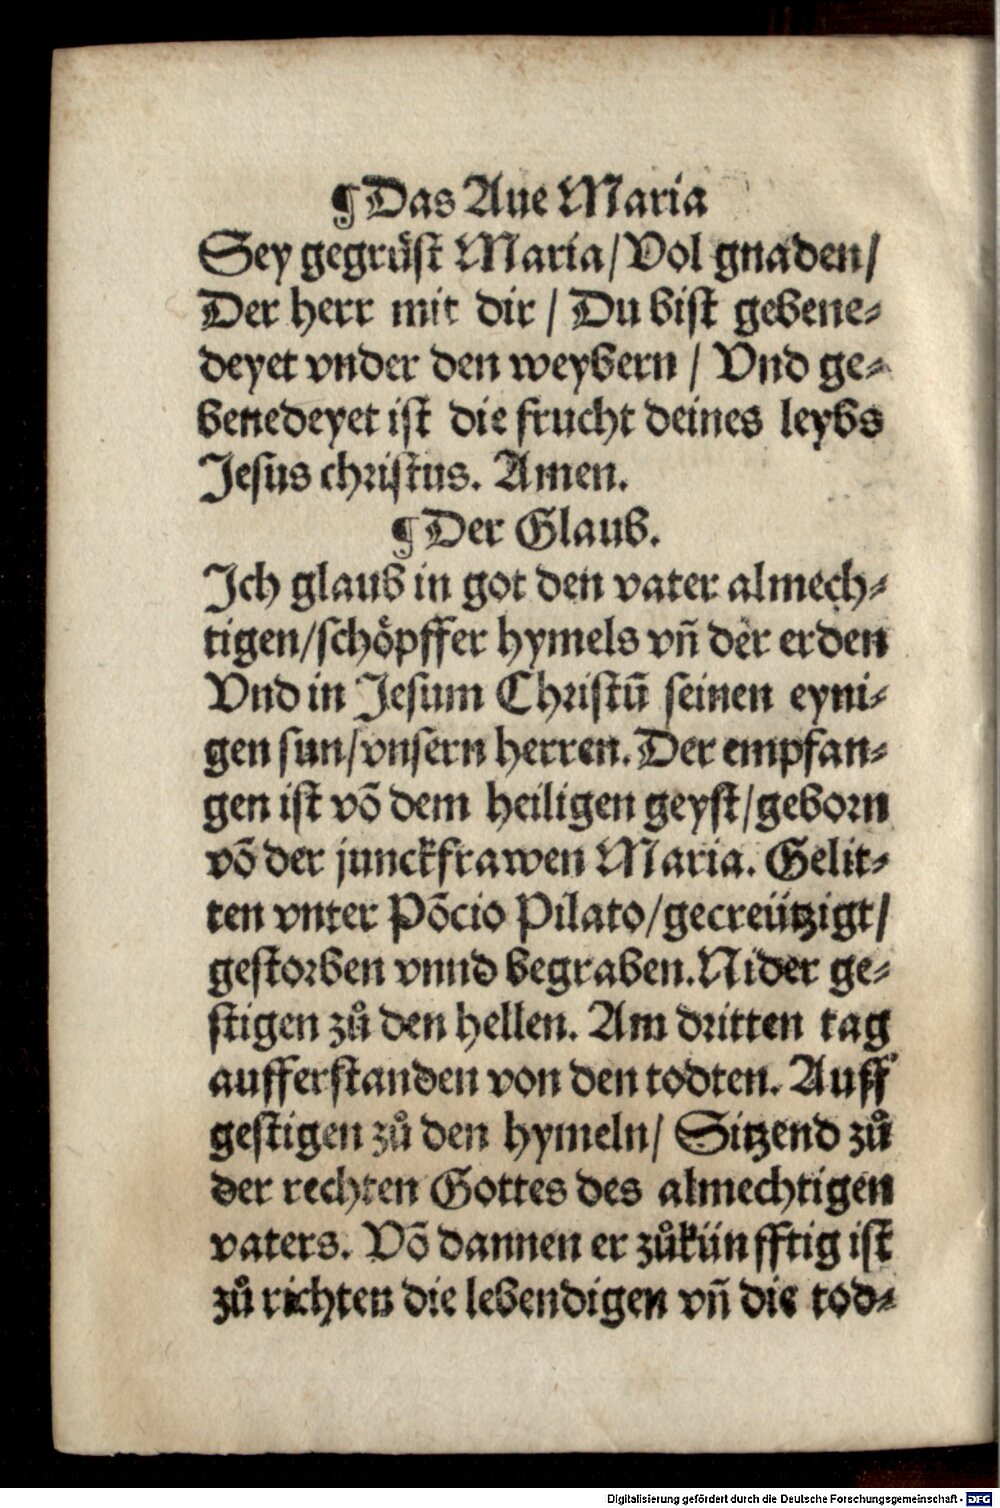 ¶Das Aue Maria
Sey gegrüst Maria/Vol gnaden/
Der herr mit dir / Du bist gebene⸗
deyet vnder den weybern / Vnd ge⸗
benedeyet ist die frucht deines leybs
Jesus christus. Amen.
¶Der Glaub.
Ich glaub in got den vater almech⸗
tigen/schöpffer hymels vn̄ der erden
Vnd in Jesum Christū seinen eyni⸗
gen sun/vnsern herren. Der empfan⸗
gen ist vō dem heiligen geyst/geborn
vō der junckfrawen Maria. Gelit⸗
ten vnter Pōcio Pilato/gecreützigt/
gestorben vnnd begraben. Nider ge⸗
stigen zů den hellen. Am dritten tag
aufferstanden von den todten. Auff
gestigen zů den hymeln/ Sitzend zů
der rechten Gottes des almechtigen
vaters. Vō dannen er zůkünfftig ist
zů richten die lebendigen vn̄ die tod⸗
Digitalisierung gefördert durch die Deutsche Forschungsgemeinschaft - DFG